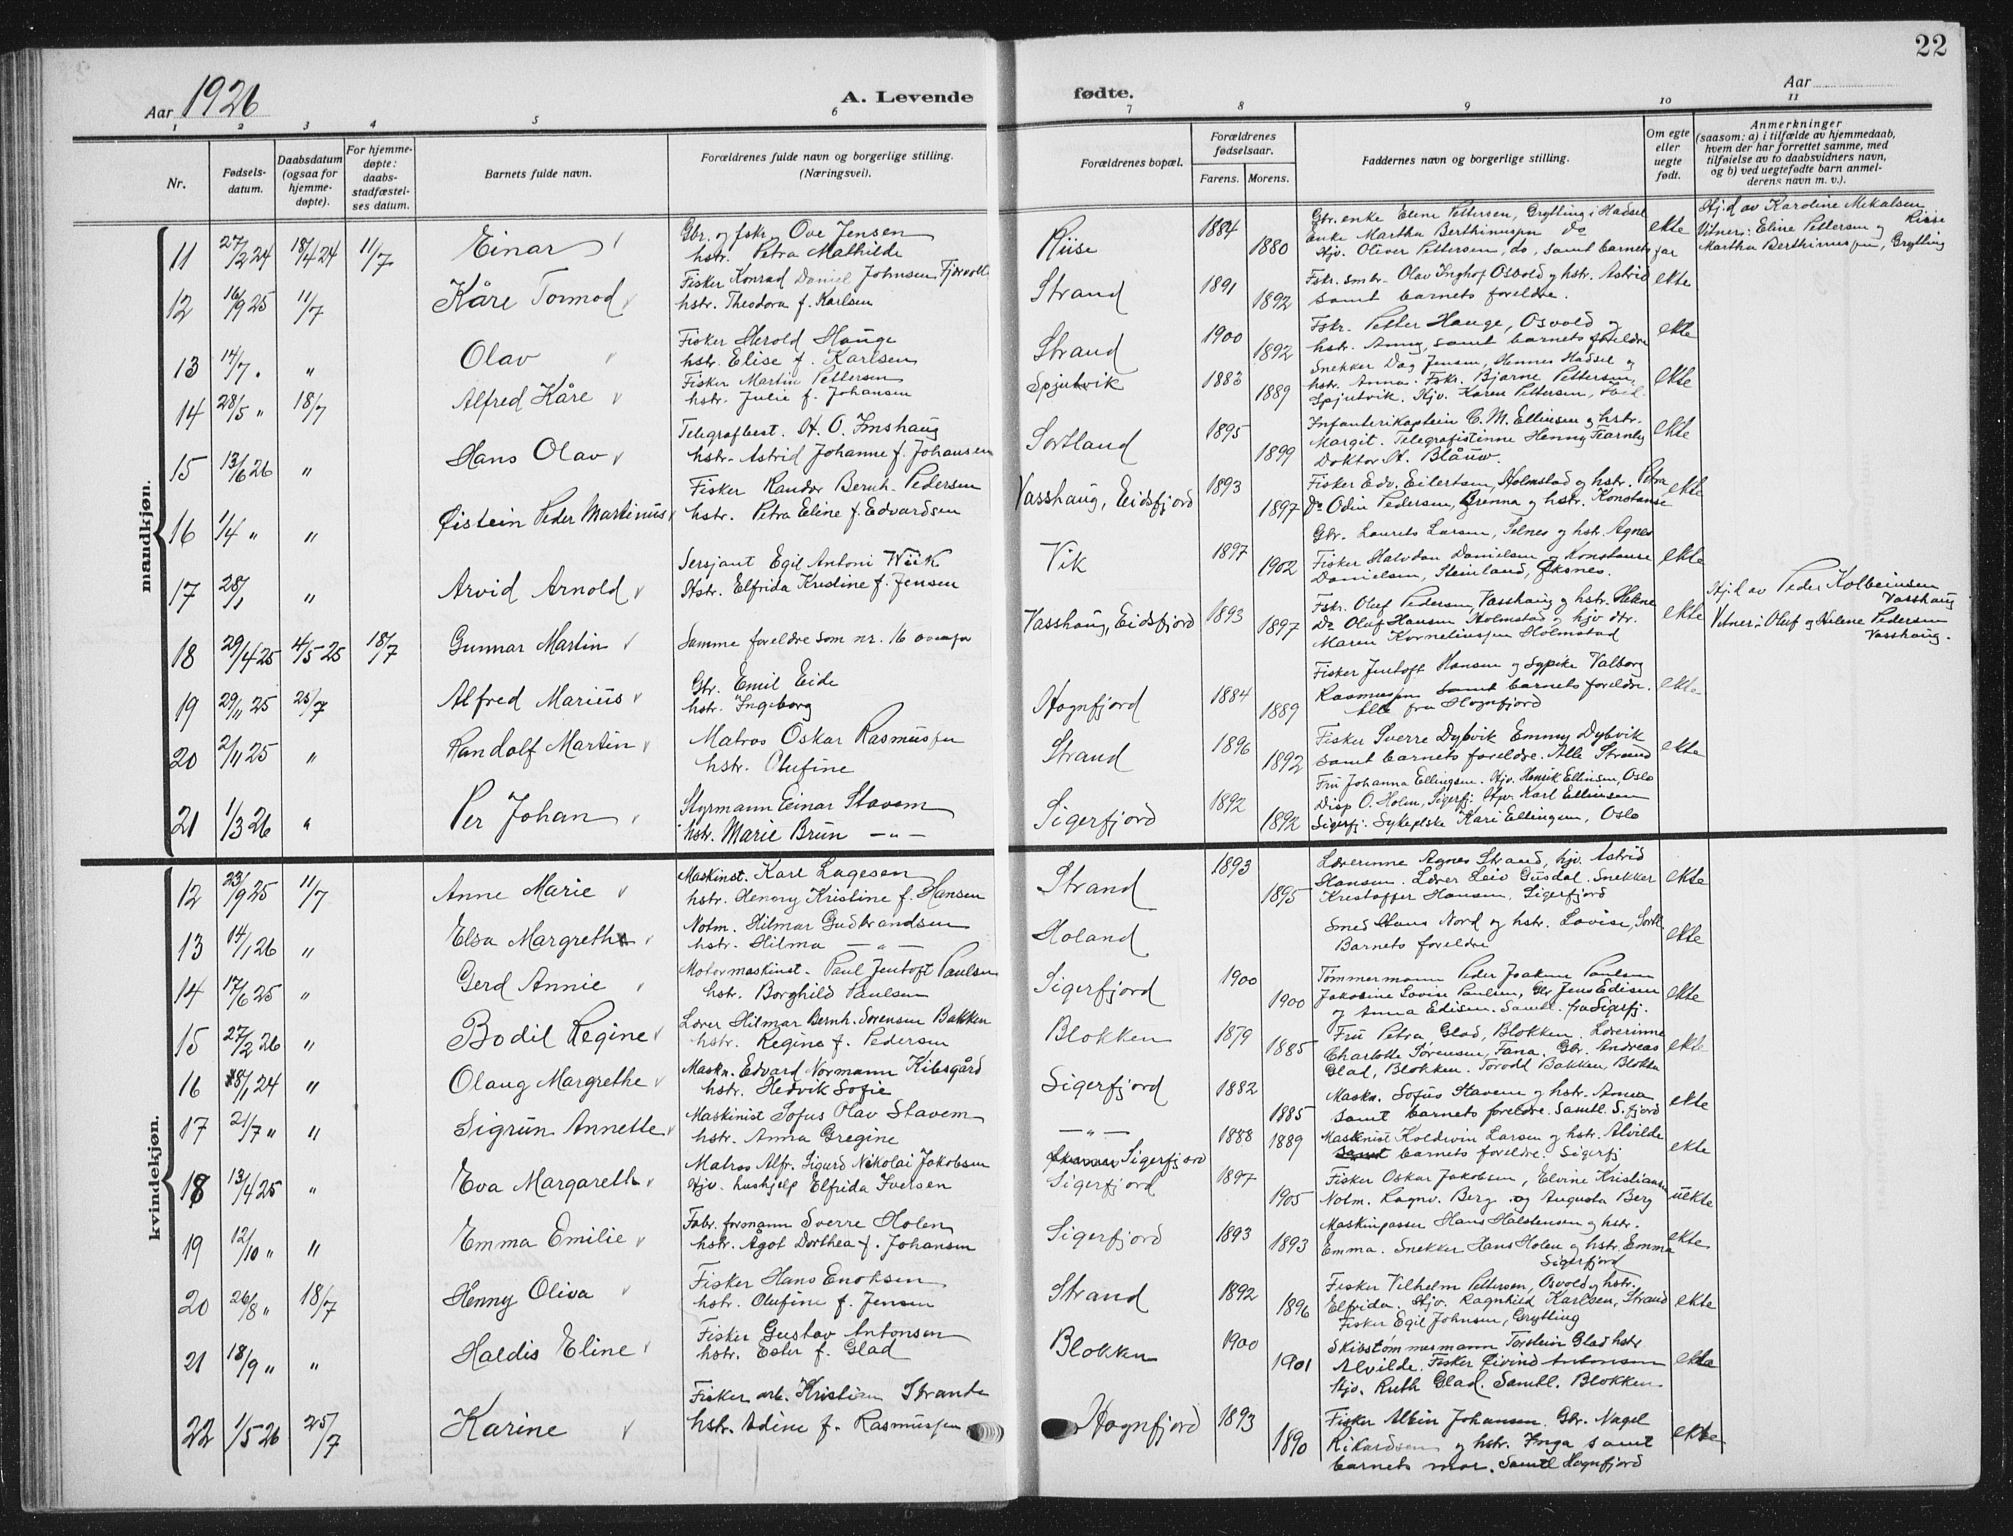 22
Aar 1926
A. Levende fødte.
Aar
1 2 3 4 5 6 7 8 9 10 11
Nr.
Fødsels-
datum.
Daabsdatum
(ogsaa for
hjemme-
døpte).
For hjemme-
døpte:
daabs-
stadfæstel-
ses datum.
Barnets fulde navn.
Forældrenes fulde navn og borgerlige stilling.
(Næringsvei).
Forældrenes bopæl.
Forældrenes
fødselsaar.
Farens. Morens.
Faddernes navn og borgerlige stilling.
Om egte
eller
uegte
født.
Anmerkninger
(saasom: a) i tilfælde av hjemmedaab,
hvem der har forrettet samme, med
tilføielse av to daabsvidners navn,
og b) ved uegtefødte barn anmel-
derens navn m. v.).
mandkjøn.
11 27/2 24 18/4 24 11/7 Einar
Gbr. og fskr. Ove Jensen
hstr. Petra Mathilde
Riise 1884 1880
Gbr. enke Eline Pettersen, Grytting i Hadsel
Enke Martha Berthinussen do
Hjv. Oliver Pettersen, do, samt barnets far
ekte
Hj.d av Karoline Mikalsen
Riise
Vitner: Eline Pettersen og
Martha Berthinussen, Grytting
12 16/9 25 11/7 Kåre Tormod
Fisker Konrad Daniel Johnsen
hstr. Theodora f. Karlsen
Strand 1891 1892
Fskr. smbr. Olav Inghof Osvold og hstr. Astrid
samt barnets foreldre.
ekte
13 14/7 " " Olav
Fisker Herold Hauge
hstr. Elise f. Karlsen
Strand 1900 1892
Fskr. Petter Hauge, Osvold og
hstr. Anny, samt barnets foreldre
ekte
14 28/5 " 18/7 Alfred Kåre
Fisker Martin Pettersen
hstr. Julie f. Johansen
Spjutvik 1883 1889
Snekker Dag Jensen, Hennes Hadsel og
hstr. Anna. Fskr. Bjarne Pettersen,
Spjutvik. Hjv. Karen Pettersen,
ekte
15 13/6 26 " Hans Olav
Telegrafbest. H. O. Imshaug
hstr. Astrid Johanne f. Johansen
Sortland 1895 1899
Infanterikaptein C. M. Ellinsen og hstr.
Margit. Telegrafistinne Henny Fearnly
Doktor H. Blåuw.
ekte
16 1/4 " " Øistein Peder Martinus
Fisker Randor Bernh. Pedersen
hstr. Petra Eline f. Edvardsen
Vasshaug, Eidsfjord 1893 1897
Fisker Edv. Eilertsen, Holmstad og hstr. Petra
Do Odin Pedersen, Grenna og hstr. Konstanse
ekte
17 28/1 " Arvid Arnold
Sersjant Egil Antoni Wiik
Hstr. Elfrida Kristine f. Jensen
Vik 1897 1902
Gbr. Laurits Larsen, Selnes og hstr. Agnes
Fisker Halvdan Danielsen og Konstanse
Danielsen, Steinland, Øksnes.
ekte
18 29/4 25 4/5 25 18/7 Gunnar Martin
Samme foreldre som nr. 16 ovenfor
Vasshaug, Eidsfjord 1893 1897
Fskr. Oluf Pedersen, Vasshaug og hstr. Helene
Do Oluf Hansen Holmstad og hjv. dtr.
Maren Korneliussen Holmstad
ekte
Hj.d av Peder Kolbeinsen
Vasshaug
Vitner: Oluf og Helene Pedersen
Vasshaug.
19 29/11 25 25/7 Alfred Marius
Gbr. Emil Eide
hstr. Ingeborg
Hognfjord 1884 1889
Fisker Jentoft Hansen og sypike Valborg
Rasmussen samt barnets foreldre.
Alle fra Hognfjord
ekte
20 2/11 25 " Randolf Martin
Matros Oskar Rasmussen
hstr. Olufine
Strand 1896 1892
Fisker Sverre Dybvik Emmy Dybvik
samt barnets foreldre. Alle Strand
ekte
21 1/3 26 " Per Johan
Styrmann Einar Stavem
hstr. Marie Brun — " —
Sigerfjord 1892 1892
Fru Johanna Ellingsen. Hjv. Henrik Ellinsen, Oslo
Disp O. Holm, Sigerfj. Hjv. Karl Ellinsen
Sigerfj. Sykepl­ske Kari Ellingsen, Oslo
kvindekjøn.
12 23/9 25 11/7 Anne Marie
Maskinst. Karl Lagesen
hstr. Henory Kristine f. Hansen
Strand 1893 1895
Lærerinne Agnes Strand, hjv. Astrid
Hansen. Lærer Leiv Gusdal. Snekker
Kristoffer Hansen, Sigerfjord
ekte
13 14/1 26 " Elsa Margrethe
Notm. Hilmar Gudbrandsen
hstr. Hilma — " —
Holand
Smed Hans Nord og hstr. Lovise, Sortl.
Barnets foreldre
ekte
14 17/6 25 " Gerd Annie
Motormaskinst. Paul Jentoft Paulsen
hstr. Borghild Paulsen
Sigerfjord 1900 1900
Tømmermann Peder Joakim Paulsen
Jakobine Lovise Paulsen, Gbr Jens Edisen
og Anna Edisen. Samtl. fra Sigerfj.
ekte
15 27/2 26 " Bodil Regine
Lærer Hilmar Bernh. Sørensen Bakken
hstr. Regine f. Pedersen
Blokken 1879 1885
Fru Petra Glad, Blokken. Lærerinne
Charlotte Sørensen, Fana. Gbr. Andreas
Glad, Blokken. Torodd Bakken Blokken
ekte
16 8/1 24 " Olaug Margrethe
Maskn. Edvard Normann Kilesgård
hstr. Hedvik Sofie
Sigerfjord 1882 1885
Maskn. Sofus Stavem og hstr. Anna
samt barnets foreldre. Samtl. S.fjord
ekte
17 21/7 " " Sigrun Annette
Maskinist Sofus Olav Stavem
hstr. Anna Gregine
— " —
Sigerfjord 1888 1889
Maskinist Koldevin Larsen og hstr. Alvilde
samt barnets foreldre. Sigerfj
ekte
18 13/4 25 " Eva Margareth
Matros Alfr. Sigurd Nikolai Jakobsen
Hjv. hushjelp Elfrida Iversen
Sigerfjord 1897 1905
Fisker Oskar Jakobsen, Elvine Kristiansen
Notm. Ragnv. Berg og Augusta Berg
uekte
19 12/10 " " Emma Emilie
Fabr. formann Sverre Holen
hstr. Ågot Dorthea f. Johansen
Sigerfjord 1893 1893
Maskinpasser Hans Halstensen og hstr.
Emma. Snekker Hans Holen og hstr. Emma
Sigerfjord
ekte
20 26/8 " 18/7 Henny Oliva
Fisker Hans Enoksen
hstr. Olufine f. Jensen
Strand 1892 1896
Fisker Vilhelm Pettersen, Osvold og hstr.
Elfrida. Hjv. Ragnhild Karlsen, Strand
Fisker Egil Johnsen, Grytting
ekte
21 18/9 " " Haldis Eline
Fisker Gustav Antonsen
hstr. Ester f. Glad
Blokken 1900 1901
Skibstømmermann Torstein Glad hstr
Alvilde. Fisker Øivind Antonsen
Hjv. Ruth Glad. Samtl. Blokken
ekte
22 1/5 26 25/7 Karine
Fisker arb. Kristian Strande
hstr. Adine f. Rasmussen
Hognfjord 1893 1890
Fisker Albin Johansen. Gbr. Nagel
Rikardsen og hstr. Inga samt
barnets mor. Samtl Hognfjord
ekte